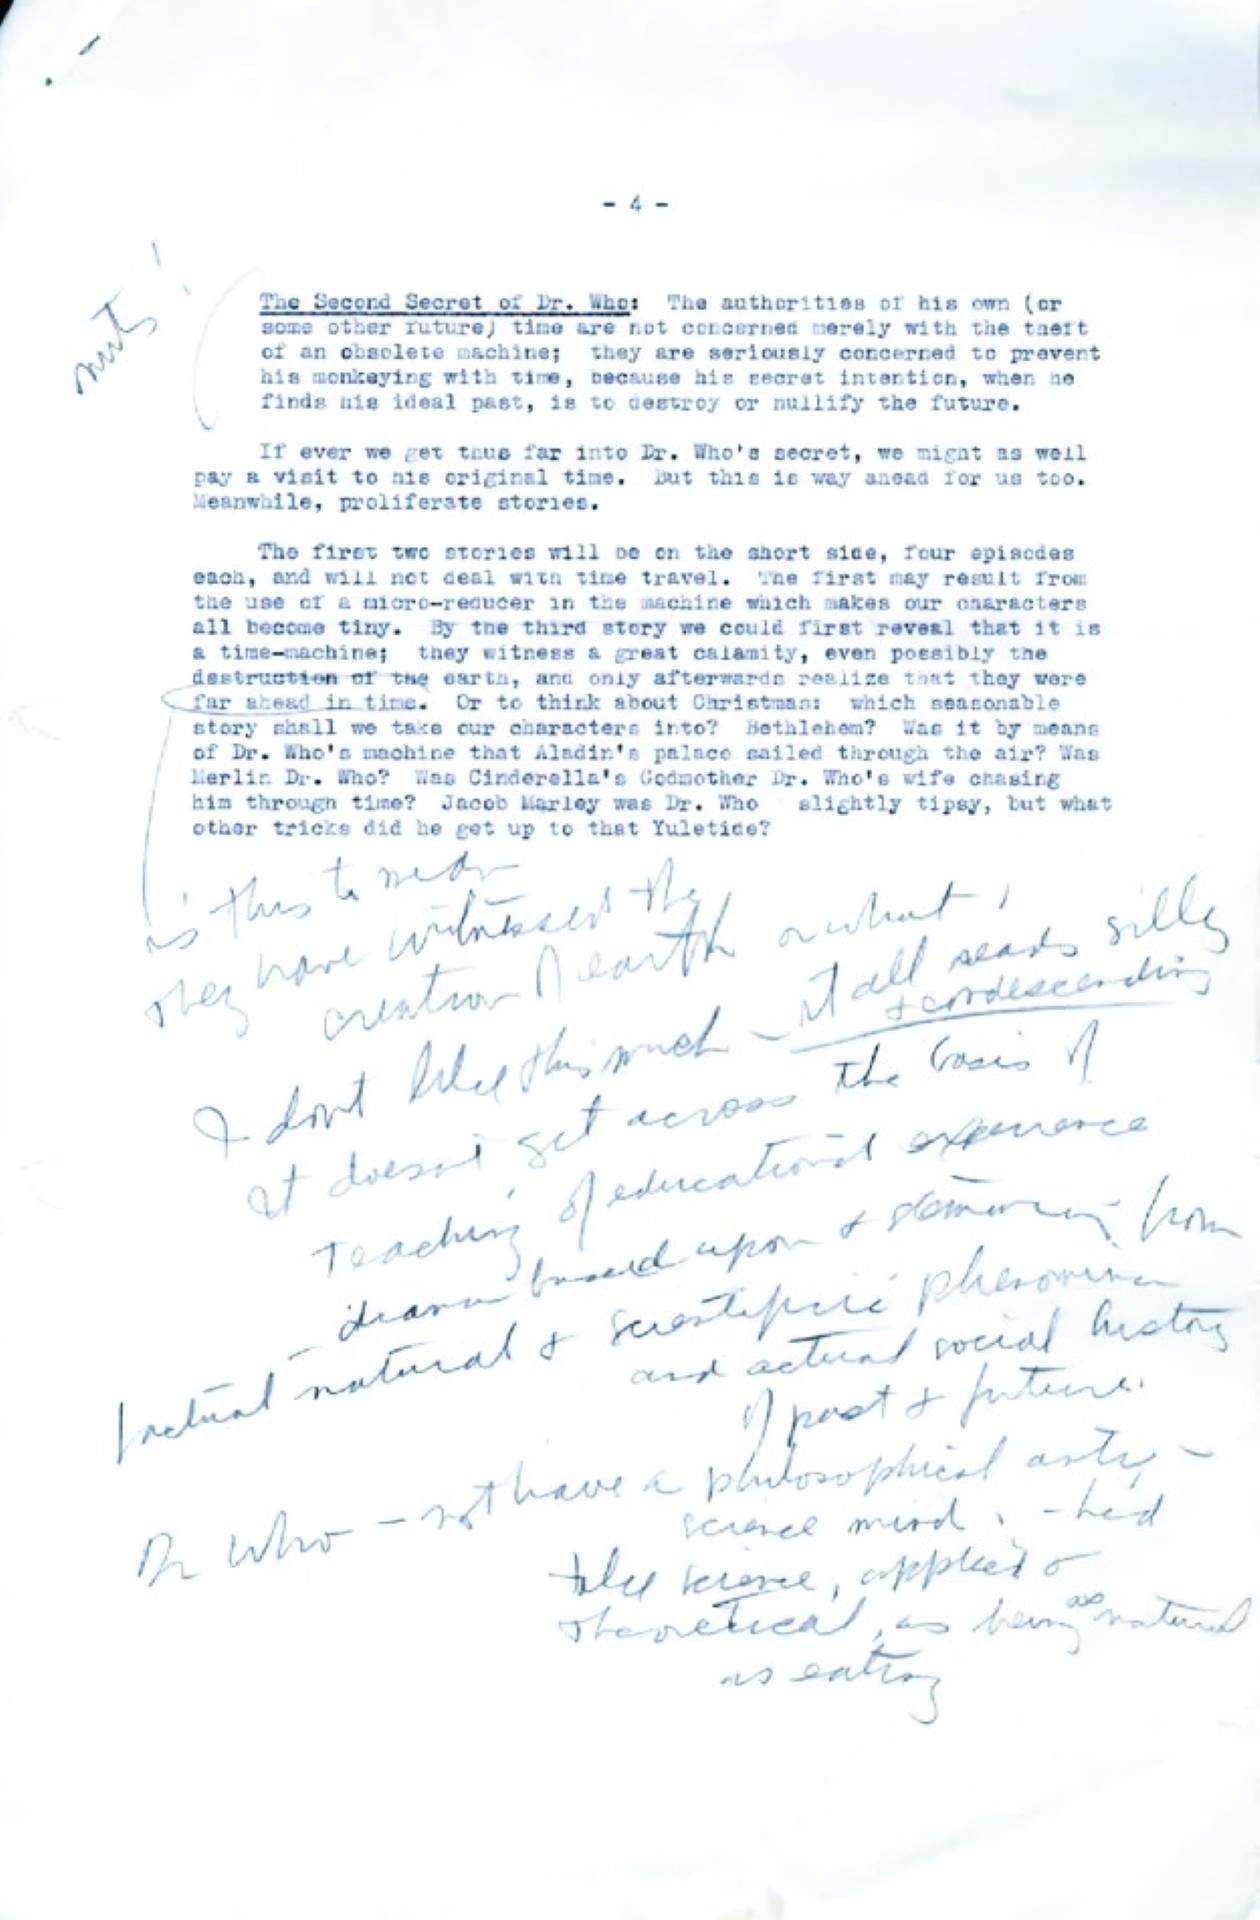 - 4 -
nuts!
The Second Secret of Dr. Who: The authorities of his own (or
some other future) time are not concerned merely with the theft
of an obsolete machine; they are seriously concerned to prevent
his monkeying with time, because his secret intention, when he
finds his ideal past, is to destroy or nullify the future.
If ever we get thus far into Dr. Who's secret, we might as well
pay a visit to his original time. But this is way ahead for us too.
Meanwhile, proliferate stories.
The first two stories will be on the short side, four episodes
each, and will not deal with time travel. The first may result from
the use of a micro-reducer in the machine which makes our characters
all become tiny. By the third story we could first reveal that it is
a time-machine; they witness a great calamity, even possibly the
destruction of the earth, and only afterwards realize that they were
far ahead in time. Or to think about Christmas: which seasonable
story shall we take our characters into? Bethlehem? Was it by means
of Dr. Who's machine that Aladin's palace sailed through the air? Was
Merlin Dr. Who? Was Cinderella's Godmother Dr. Who's wife chasing
him through time? Jacob Marley was Dr. Who slightly tipsy, but what
other tricks did he get up to that Yuletide?
is this to mean
they have witnessed the
creation of earth or what!
I dont like this much - it all reads silly
& condescending
It doesnt get across the basis of
teaching, of educational experience
- drama based upon & stemming from
factual natural & scientific phenomena
and actual social history
of past & future.
Dr Who - not have a philosophical arty -
science mind. - he'd
take science, applied &
theoretical, as being as natural
as eating